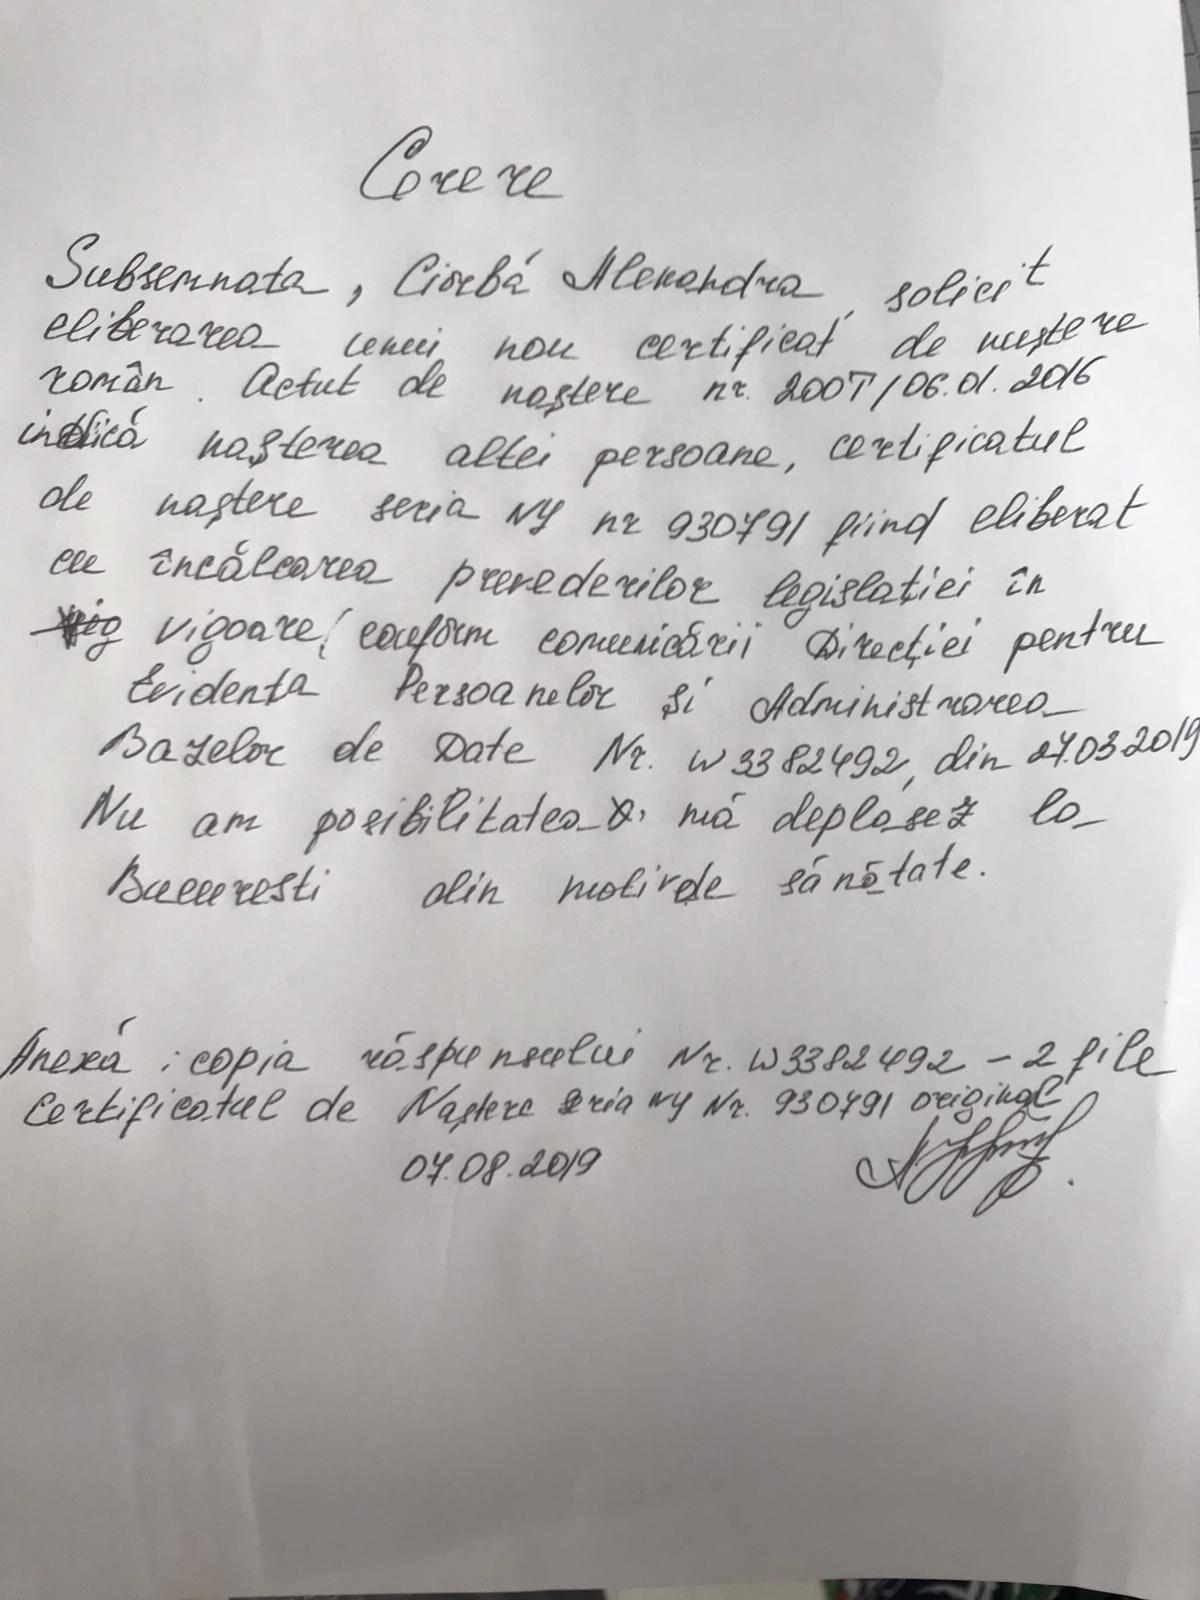 Cerere
Subsemnata, Ciorbă Alexandra, solicit
eliberarea unui nou certificat de naștere
român. Actul de naștere nr. 200T/06.01.2016
indică nașterea altei persoane, certificatul
de naștere seria NY nr 930791 fiind eliberat
cu încălcarea prevederilor legislației în
vigoare, conform comunicării Direcției pentru
Evidența Persoanelor și Administrarea
Bazelor de Date Nr. W3382492, din 27.03.2019
Nu am posibilitatea să mă deplasez la
București din motive de sănătate.
Anexă: copia răspunsului Nr. W3382492 - 2 file
Certificatul de Naștere Seria NY Nr. 930791 original
07.08.2019